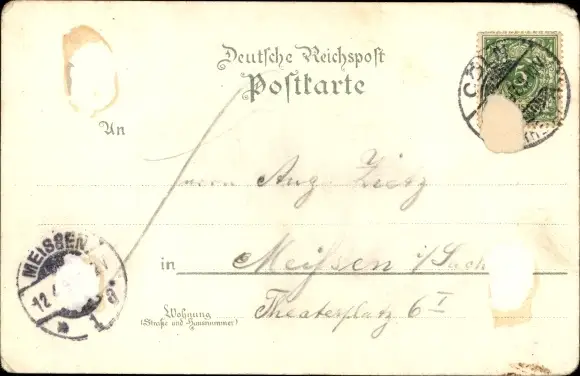 Deutsche Reichspost
Postkarte
An
Herrn Aug. Ziesz
in Meißen i/Sach
Wohnung
(Straße und Hausnummer)
Theaterplatz 6 I
MEISSEN
12
1
5